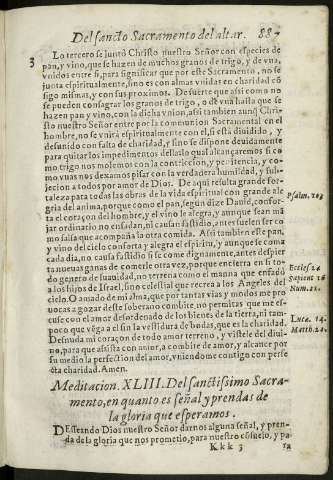 Del sancto Sacramento del altar. 887
3 Lo tercero se juntò Christo nuestro Señor con especies de
pan, y vino, que se hazen de muchos granos de trigo, y de vua,
vnidos entre si, para significar que por este Sacramento, no se
junta espiritualmente, sino es con almas vnidas en charidad cõ
sigo mismas, y con sus proximos. De suerte que assi como no
se pueden consagrar los granos de trigo, o de vua hasta que se
hazen pan y vino, con la dicha vnion, assi tambien aunq̃ Chris
sto nuestro Señor entre por la comunion Sacramental en el
hombre, no se vnirà espiritualmente con el, si està diuidido, y
desunido con falta de charidad, y sino se dispone deuidamente
para quitar los impedimentos della: lo qual alcançaremos si co
mo trigo nos molemos con la contricion, y penitencia, y co-
mo vuas nos dexamos pisar con la verdadera humildad, y sub-
jecion a todos por amor de Dios. De aqui resulta grande for-
taleza para todas las obras de la vida espiritual con grande ale
gria del anima, porque como el pan, segun dize Dauid, confor-
ta el coraçon del hombre, y el vino le alegra, y aunque sean mã
jar ordinario no enfadan, ni causan fastidio, antes suelen ser co
mo salsa que acompaña la otra comida. Assi tambien este pan,
y vino del cielo conforta y alegra el espiritu, y aunque se coma
cada dia, no causa fastidio si se come dignamente, antes despier
ta nueuas ganas de comerle otra vez, porque encierra en si to-
do genero de suauidad, no terrena como el manna que enfadò
a los hijos de Israel, sino celestial que recrea a los Angeles del
cielo. O amado de mi alma, que por tantas vias y modos me pro
uocas a gozar desse soberano combite, no permitas que me es-
cuse con el amor desordenado de los bienes de la tierra, ni tam-
poco que vẽga a el sin la vestidura de bodas, que es la charidad.
Desnuda mi coraçon de todo amor terreno, y vistele del diui-
no, para que assista con amor, a combite de amor, y alcance por
su medio la perfection del amor, vniendome contigo con perfe
cta charidad. Amen.
Psalm. 103
Eccles. 24
Sapien. 16
Num. 21.
Luca. 14.
Matth. 22.
Meditacion. XLIII. Del sanctissimo Sacra-
mento, en quanto es señal y prendas de
la gloria que esperamos.
DEsseando Dios nuestro Señor darnos alguna señal, y pren-
da de la gloria que nos prometio, para nuestro cõsuelo, y pa
Kkk 3 ra